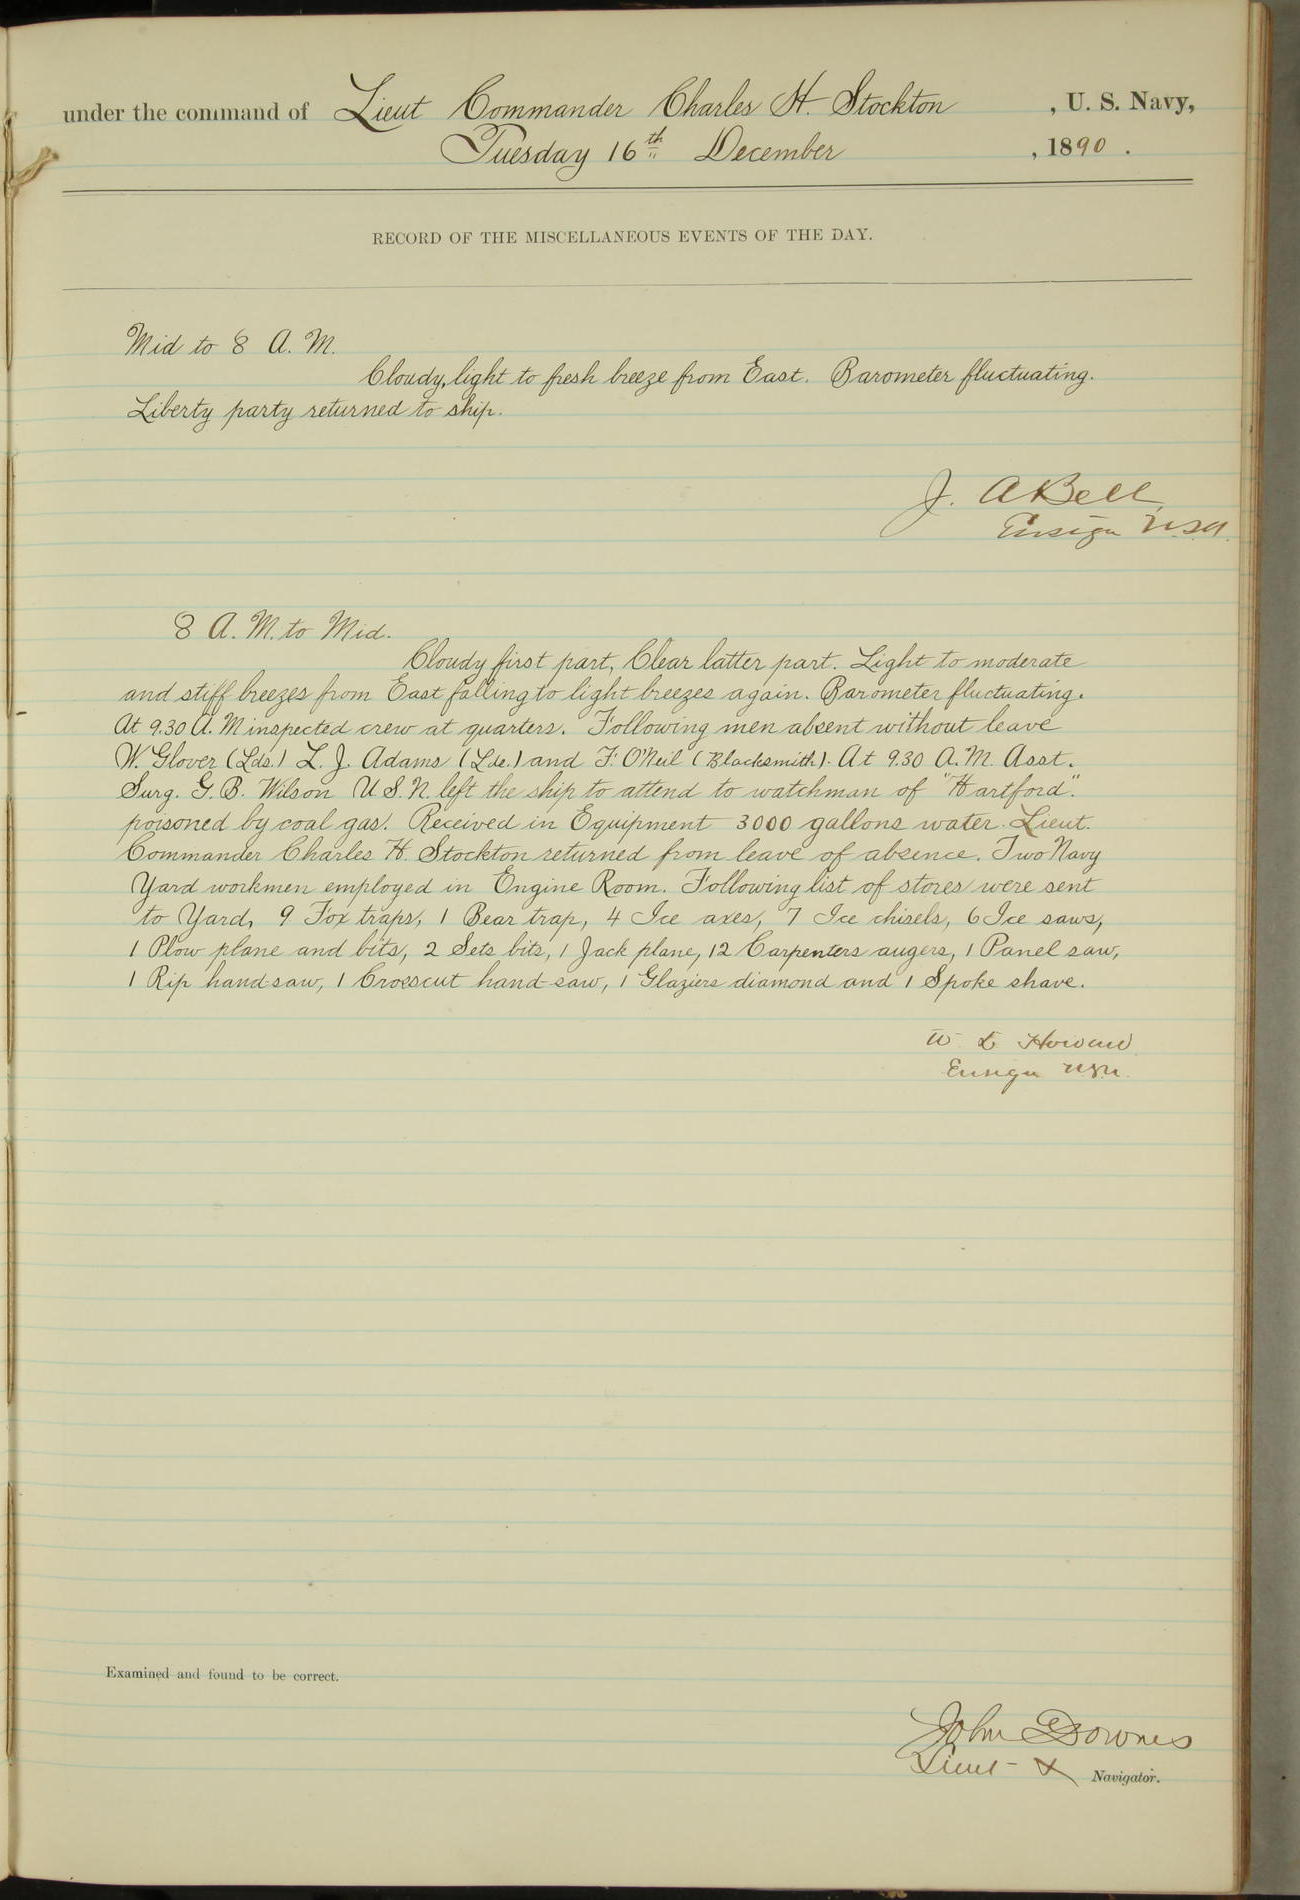 under the command of Lieut Commander Charles H. Stockton , U. S. Navy,
Tuesday 16th December , 1890 .
RECORD OF THE MISCELLANEOUS EVENTS OF THE DAY.
Mid to 8 A. M.
Cloudy, light to fresh breeze from East. Barometer fluctuating.
Liberty party returned to ship.
J. A Bell
Ensign U.S.N.
8 A. M. to Mid.
Cloudy first part, Clear latter part. Light to moderate
and stiff breezes from East falling to light breezes again. Barometer fluctuating.
At 9.30 A. M inspected crew at quarters. Following men absent without leave
W. Glover (Lds.) L. J. Adams (Lds.) and F. O'Neil (Blacksmith). At 9.30 A. M. Asst.
Surg. G. B. Wilson U S. N. left the ship to attend to watchman of "Hartford".
poisoned by coal gas. Received in Equipment 3000 gallons water. Lieut.
Commander Charles H. Stockton returned from leave of absence. Two Navy
Yard workmen employed in Engine Room. Following list of stores were sent
to Yard, 9 Fox traps, 1 Bear trap, 4 Ice axes, 7 Ice chisels, 6 Ice saws,
1 Plow plane and bits, 2 Sets bits, 1 Jack plane, 12 Carpenters augers, 1 Panel saw,
1 Rip hand-saw, 1 Crosscut hand-saw, 1 Glaziers diamond and 1 Spoke shave.
W L Howard
Ensign U.S.N.
Examined and found to be correct.
John Downes
Lieut - & Navigator.